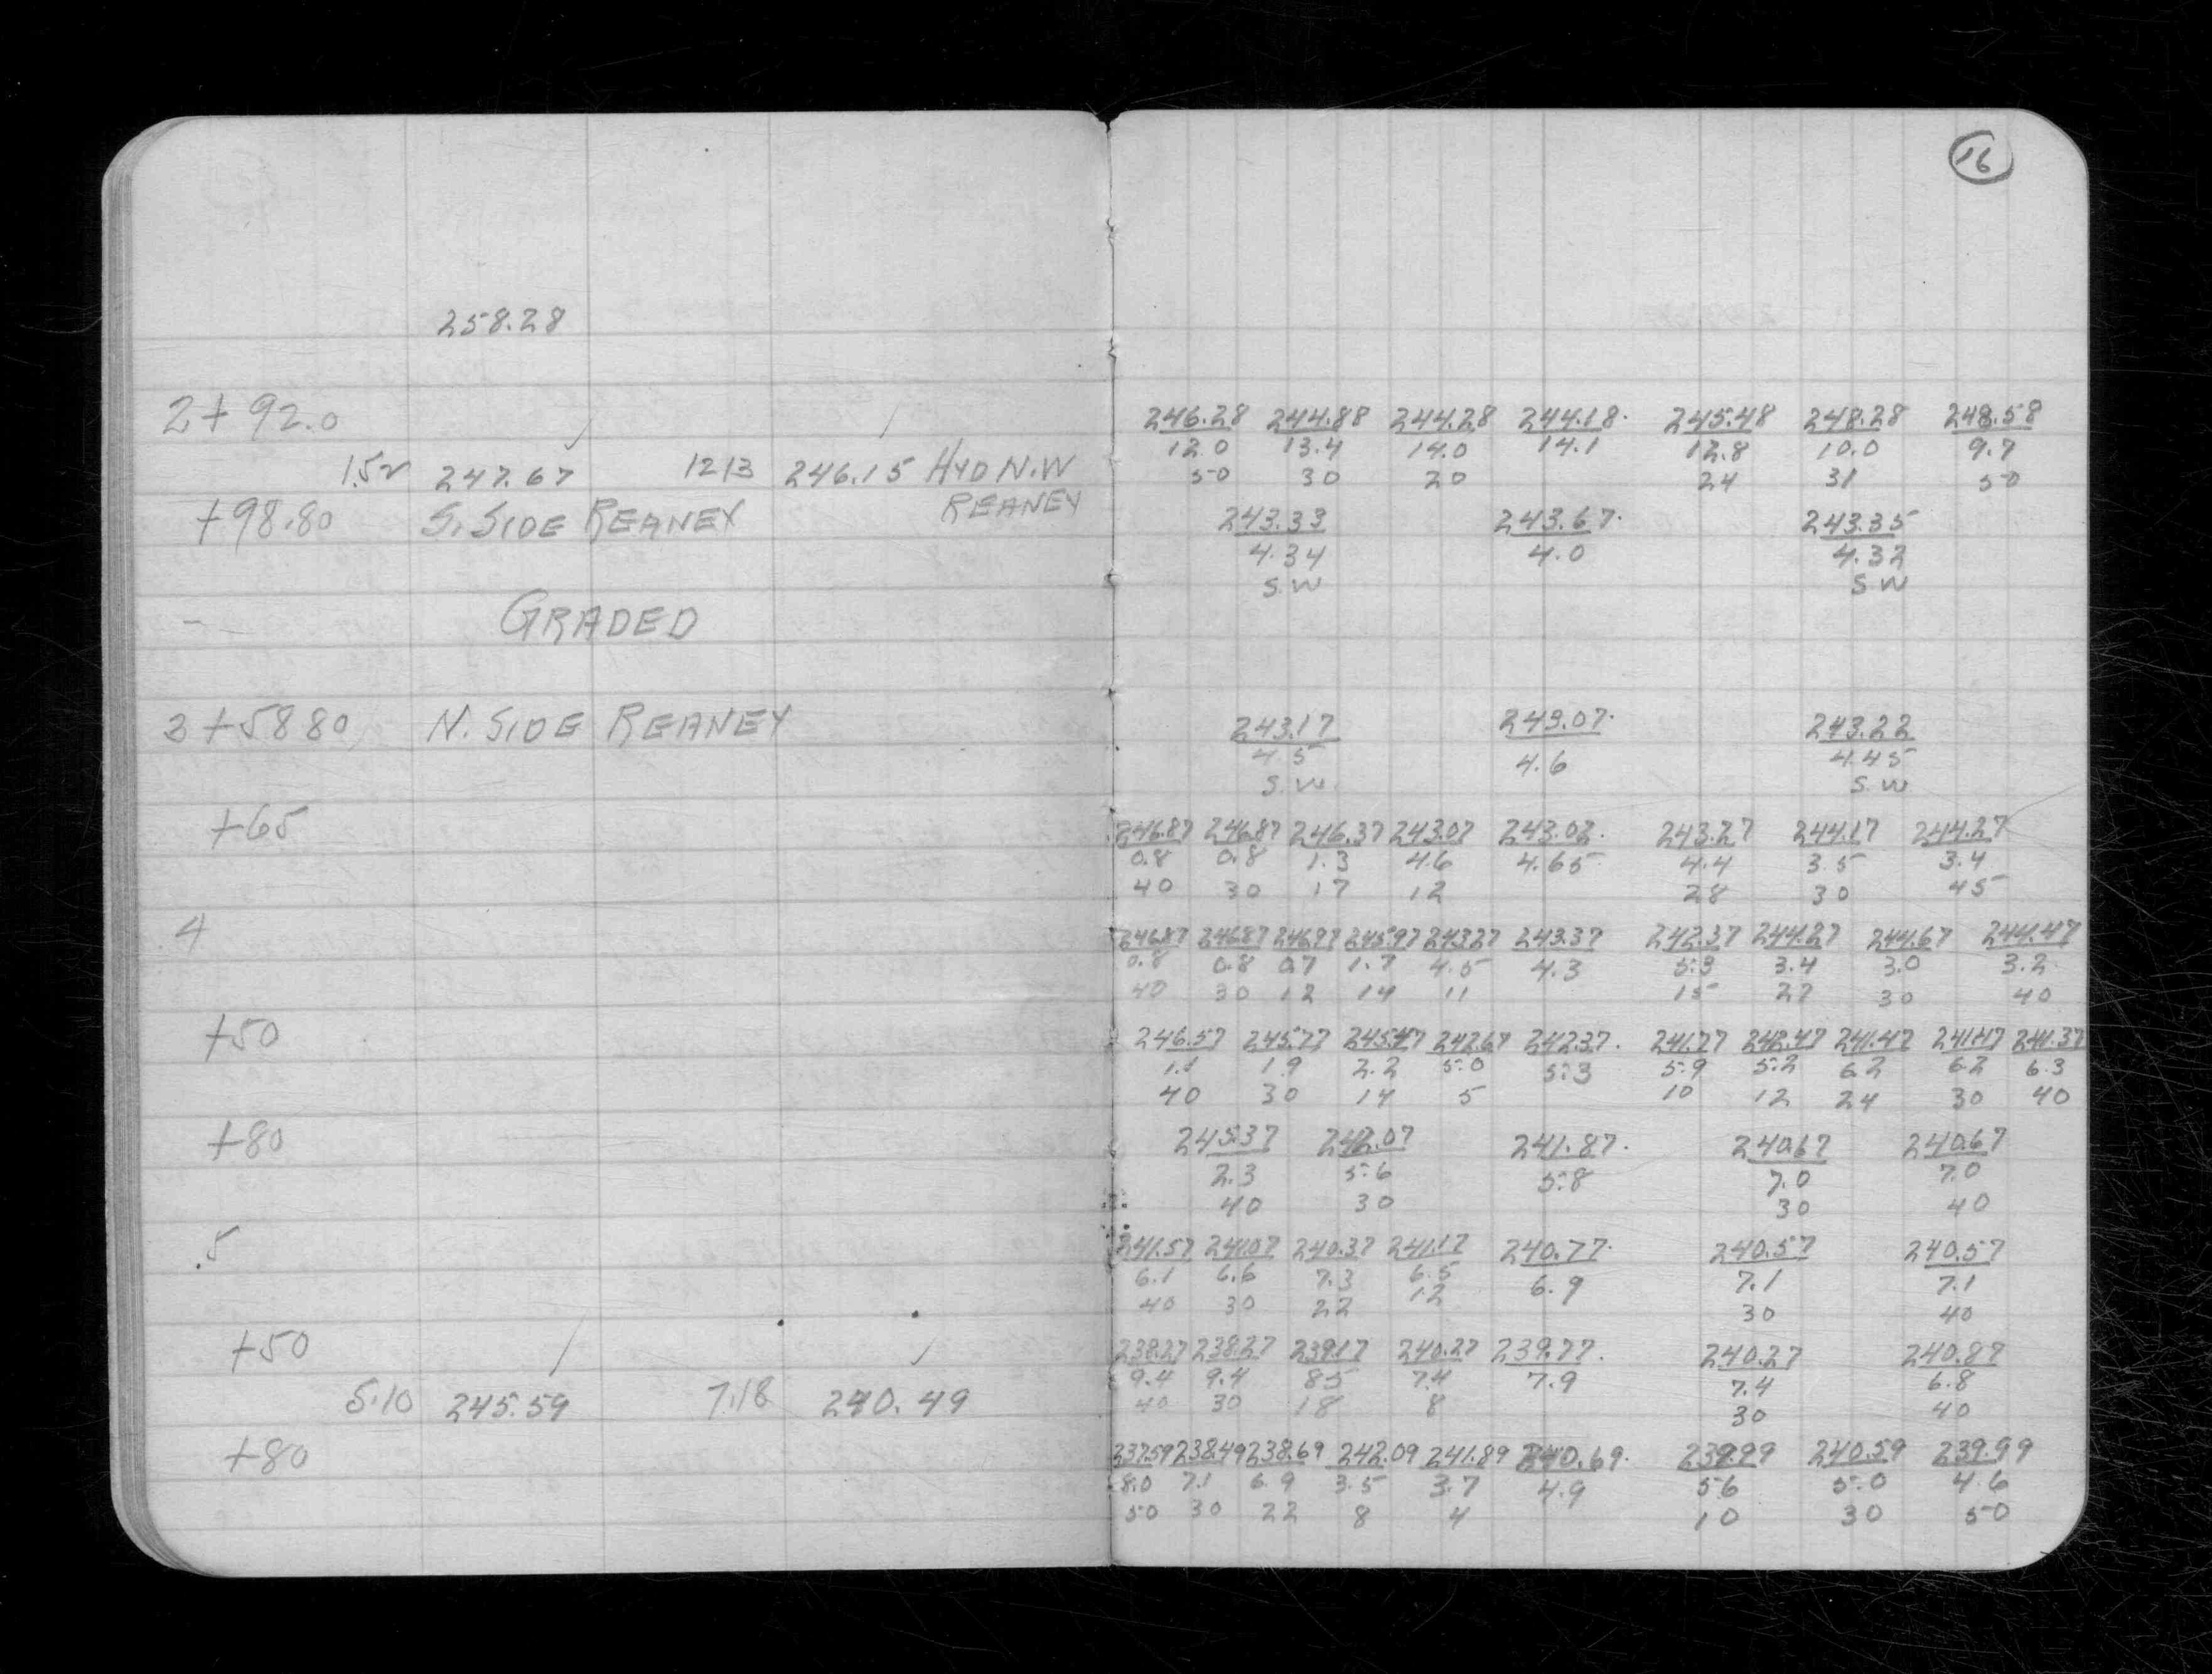 16
258.28
2+92.0
1.52 247.67 12 13 246.15 HYD N.W
REANEY
+98.80 S. SIDE REANEY
- GRADED
3+58 80 N. SIDE REANEY
+65
4
+50
+80
5
+50
5.10 245.59 7.18 240.49
+80
246.28 244.88 244.28 244.18 245.48 248.28 248.58
12.0 13.4 14.0 14.1 12.8 10.0 9.7
50 30 20 24 31 50
243.33 243.67 243.35
4.34 4.0 4.32
S.W S W
243.17 243.07 243.22
4.5 4.6 4.45
S.W. S.W
246.87 246.87 246.37 243.07 243.02 243.27 244.17 244.27
0.8 0.8 1.3 4.6 4.65 4.4 3.5 3.4
40 30 17 12 28 30 45
246.87 246.87 246.97 245.97 243.27 243.37 242.37 244.27 244.67 244.47
0.8 0.8 0.7 1.7 4.5 4.3 5.3 3.4 3.0 3.2
40 30 12 14 11 15 27 30 40
246.57 245.77 245.47 242.67 242.37 241.77 242.47 241.47 241.47 241.37
1.1 1.9 2.2 5.0 5.3 5.9 5.2 6.2 6.2 6.3
40 30 14 5 10 12 24 30 40
245.37 242.07 241.87 240.67 240.67
2.3 5.6 5.8 7.0 7.0
40 30 30 40
241.57 241.07 240.37 241.17 240.77 240.57 240.57
6.1 6.6 7.3 6.5 6.9 7.1 7.1
40 30 22 12 30 40
238.27 238.27 239.17 240.27 239.77 240.27 240.87
9.4 9.4 8.5 7.4 7.9 7.4 6.8
40 30 18 8 30 40
237.59 238.49 238.69 242.09 241.89 240.69 239.99 240.59 239.99
8.0 7.1 6.9 3.5 3.7 4.9 5.6 5.0 4.6
50 30 22 8 4 10 30 50